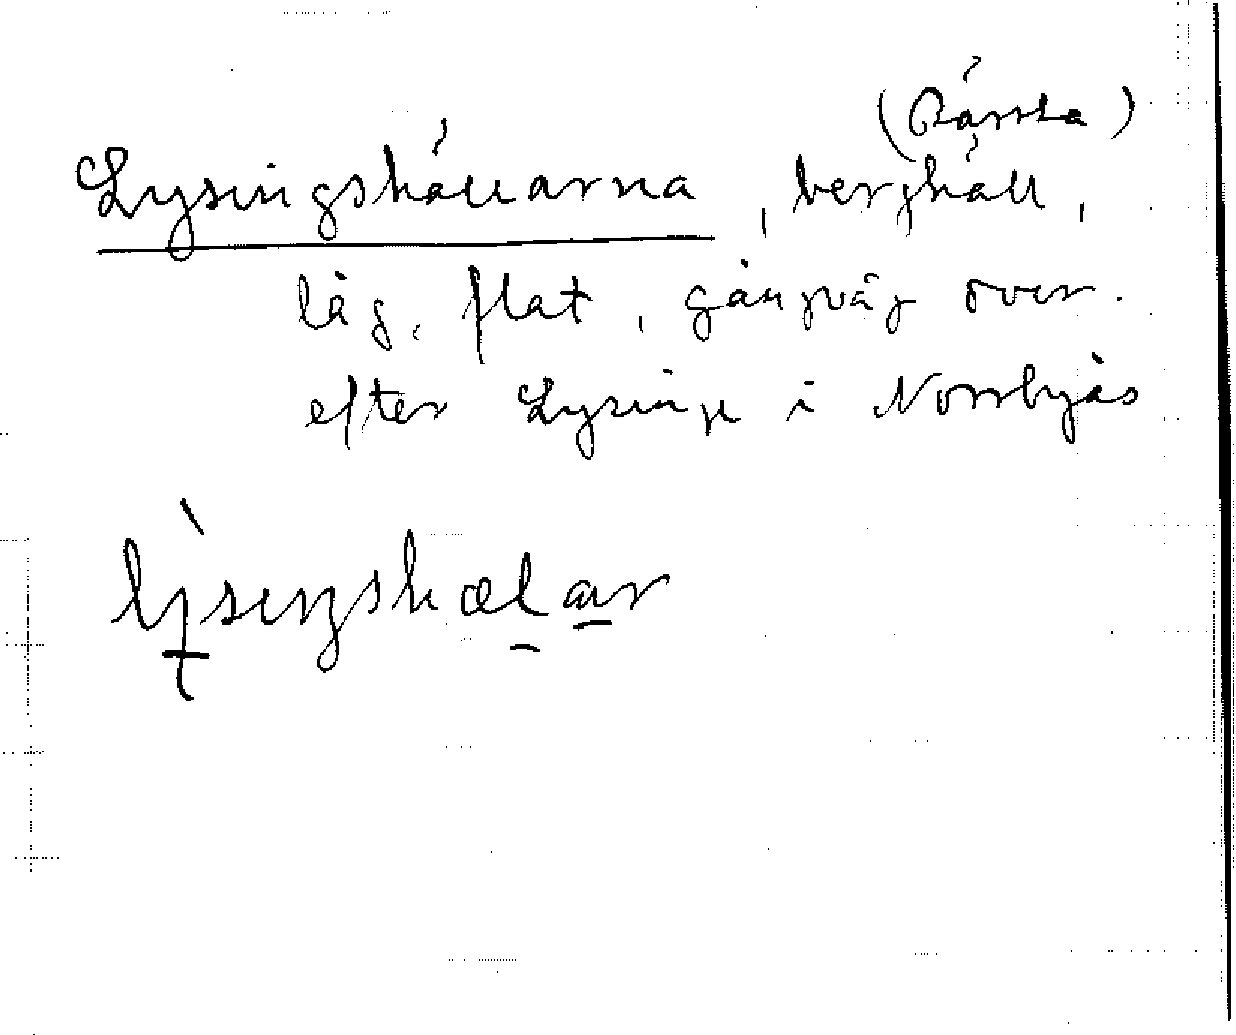 (Rånsta)
Lysingshällarna, berghäll,
låg, flat, gångväg över.
efter Lysinge i Norrbyås
lysiŋshælar